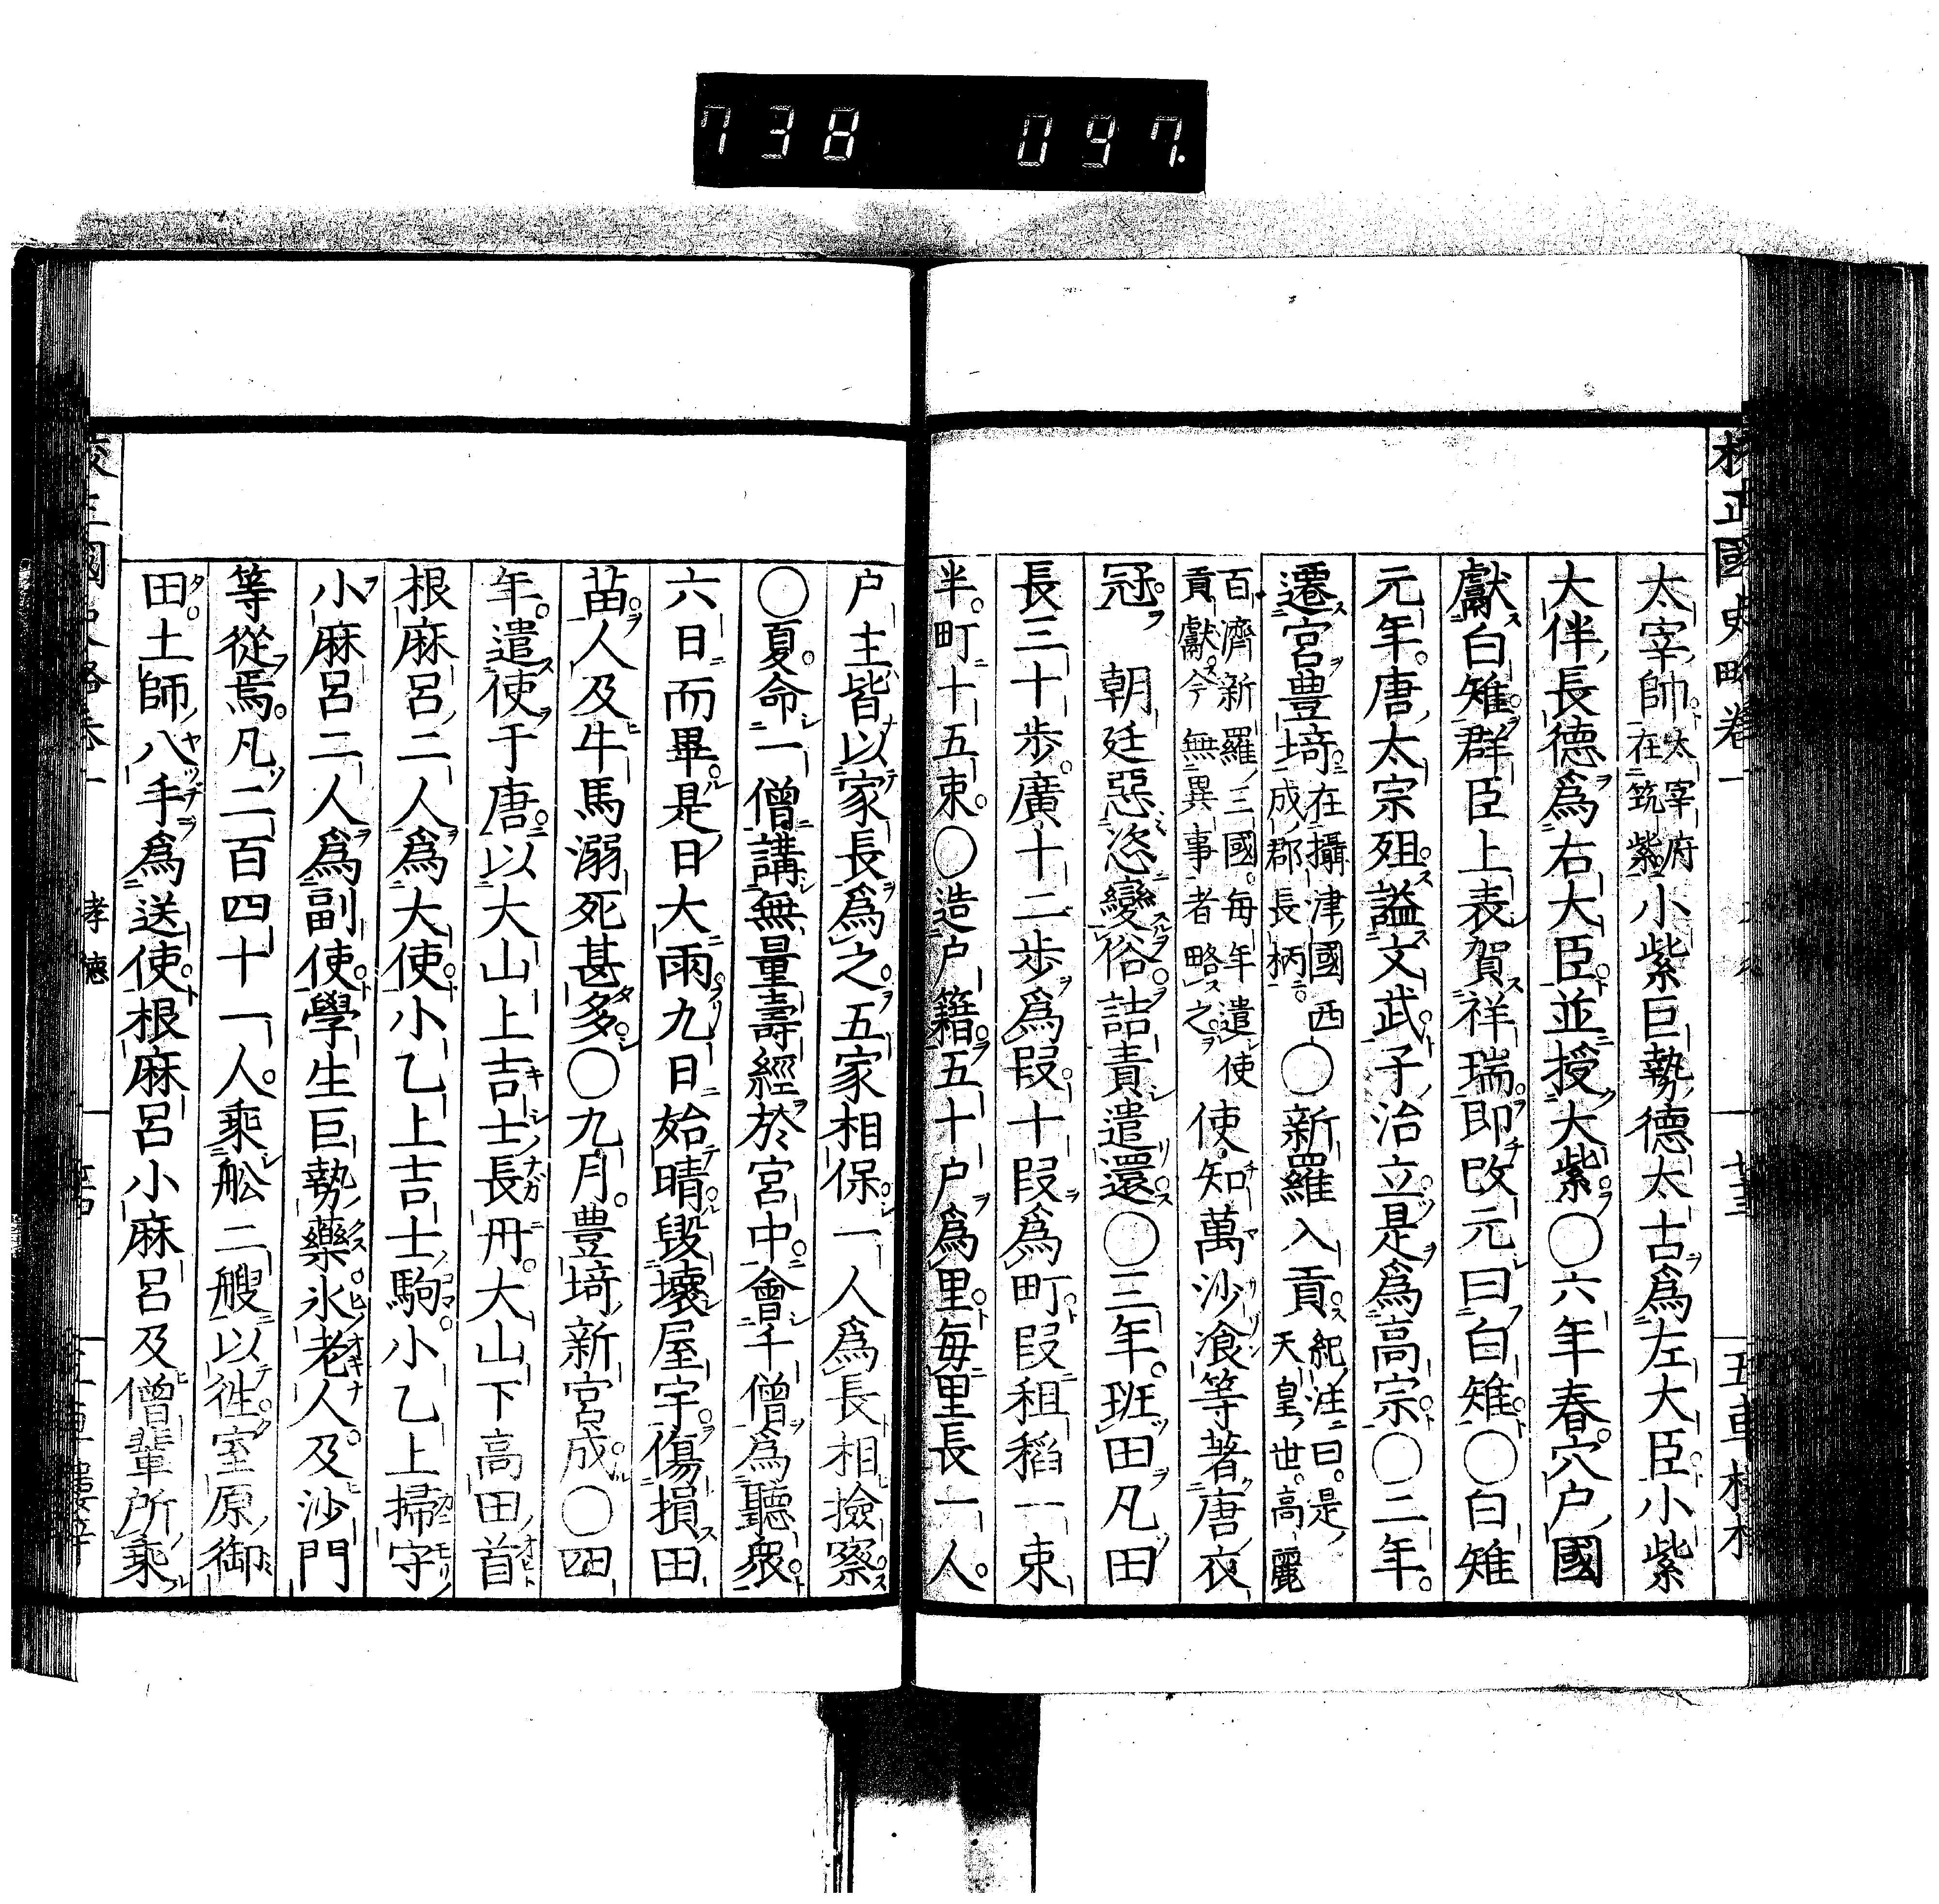 738 097.
校正國史略卷一
太宰帥太宰府在筑紫小紫巨勢德太古爲左大臣小紫
大伴長德爲右大臣並授大紫○六年春穴戶國
獻白雉群臣上表賀祥瑞即改元曰白雉○白雉
元年唐太宗殂謚文武子治立是爲高宗○二年
遷宮豊埼在攝津國西成郡長柄○新羅入貢紀注曰是天皇世高麗
百濟新羅三國每年遣使貢獻今無異事者略之使知萬沙飡等著唐衣
冠 朝廷惡恣變俗詰責遣還○三年班田凡田
長三十步廣十二步爲段十段爲町段租稻一束
半町十五束○造戶籍五十戶爲里每里長一人
戶主皆以家長爲之五家相保一人爲長相撿察
○夏命一僧講無量壽經於宮中會千僧爲聽衆
六日而畢是日大雨九日始晴毀壞屋宇傷損田
苗人及牛馬溺死甚多○九月豊埼新宮成○四
年遣使于唐以大山上吉士長丹大山下高田首
根麻呂二人爲大使小乙上吉士駒小乙上掃守
小麻呂二人爲副使學生巨勢藥氷老人及沙門
等從焉凡二百四十一人乘舩二艘以徃室原御
田土師八手爲送使根麻呂小麻呂及僧輩所乘
孝德